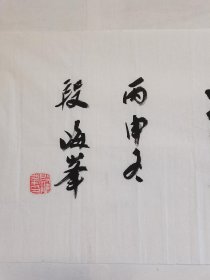 丙申冬
段海峯